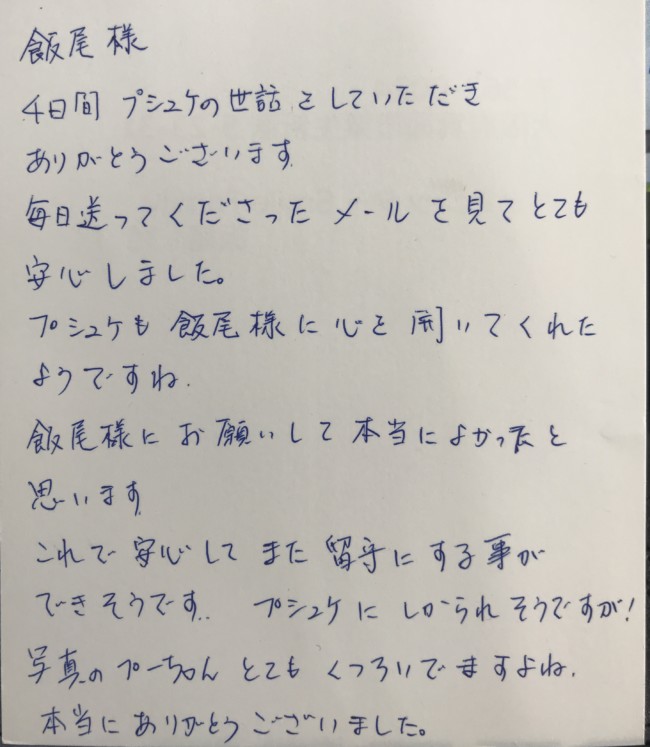 飯尾様
4日間 プシュケの世話をしていただき
ありがとうございます
毎日送ってくださった メールを見てとても
安心しました。
プシュケも 飯尾様に心を開いてくれた
ようですね.
飯尾様に お願いして 本当によかったと
思います
これで安心して また留守にする事が
できそうです. プシュケに しかられそうですが!
写真のプーちゃん とても くつろいでますよね.
本当にありがとうございました。